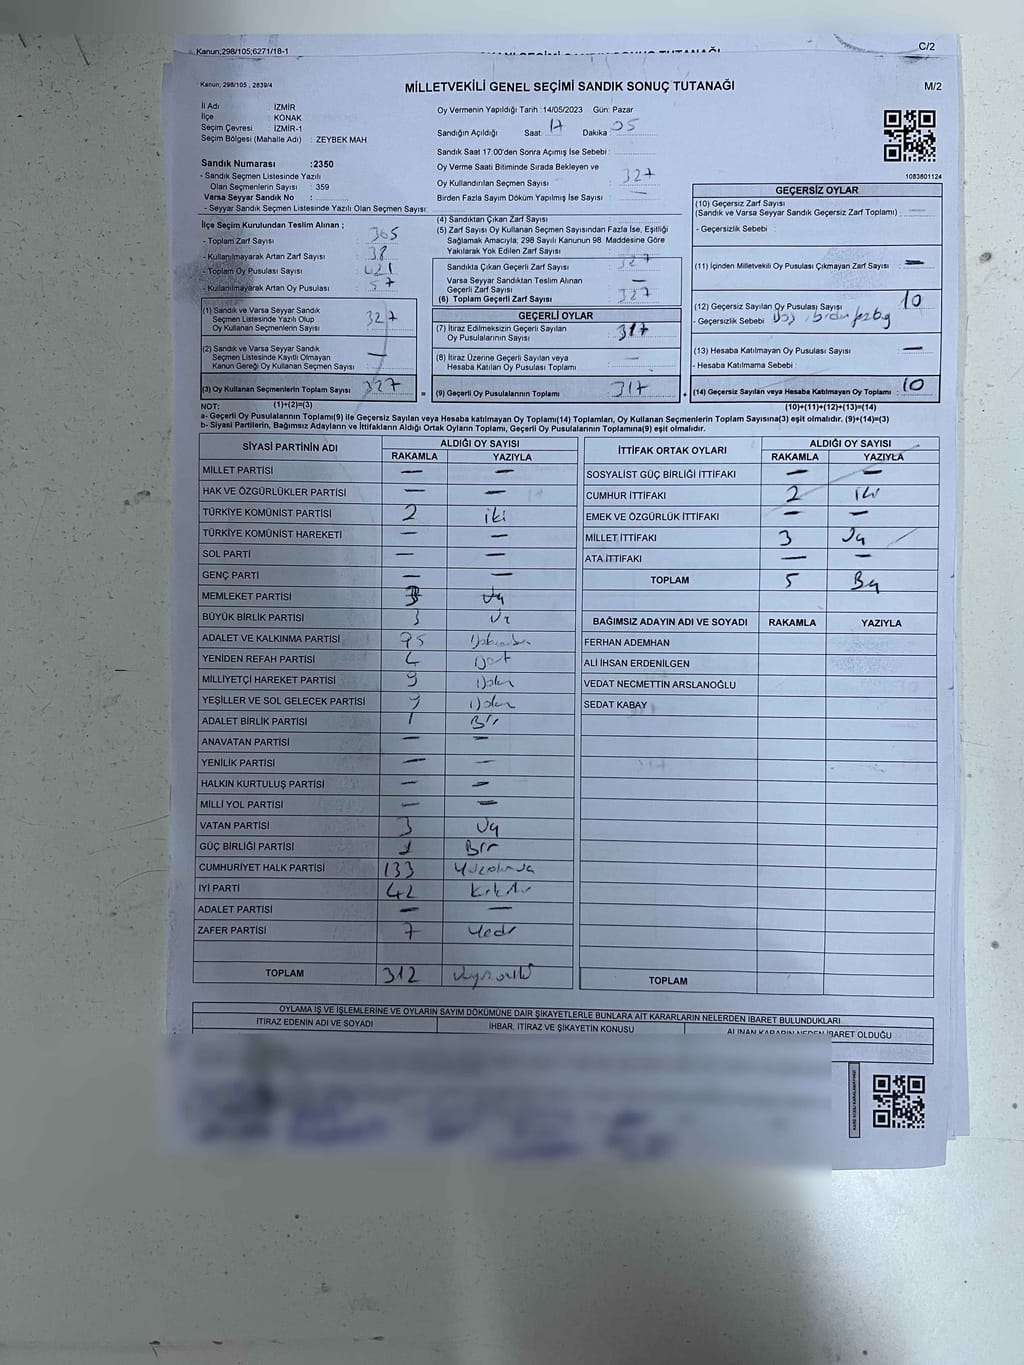 Kanun;298/105;6271/18-1
C/2
Kanun; 298/105 , 2839/4
MİLLETVEKİLİ GENEL SEÇİMİ SANDIK SONUÇ TUTANAĞI
M/2
İl Adı : İZMİR
İlçe : KONAK
Seçim Çevresi : İZMİR-1
Seçim Bölgesi (Mahalle Adı) : ZEYBEK MAH
Sandık Numarası :2350
- Sandık Seçmen Listesinde Yazılı
Olan Seçmenlerin Sayısı : 359
Varsa Seyyar Sandık No :
- Seyyar Sandık Seçmen Listesinde Yazılı Olan Seçmen Sayısı:
Oy Vermenin Yapıldığı Tarih : 14/05/2023 Gün: Pazar
Sandığın Açıldığı Saat: 17 Dakika : 05
Sandık Saat 17:00'den Sonra Açımış İse Sebebi :
Oy Verme Saati Bitiminde Sırada Bekleyen ve
Oy Kullandırılan Seçmen Sayısı : 327
Birden Fazla Sayım Döküm Yapılmış İse Sayısı :
1083801124
İlçe Seçim Kurulundan Teslim Alınan ;
- Toplam Zarf Sayısı : 365
- Kullanılmayarak Artan Zarf Sayısı : 38
- Toplam Oy Pusulası Sayısı : 421
- Kullanılmayarak Artan Oy Pusulası : 57
(1) Sandık ve Varsa Seyyar Sandık
Seçmen Listesinde Yazılı Olup
Oy Kullanan Seçmenlerin Sayısı 327
(2) Sandık ve Varsa Seyyar Sandık
Seçmen Listesinde Kayıtlı Olmayan
Kanun Gereği Oy Kullanan Seçmen Sayısı —
(3) Oy Kullanan Seçmenlerin Toplam Sayısı 327
(4) Sandıktan Çıkan Zarf Sayısı :
(5) Zarf Sayısı Oy Kullanan Seçmen Sayısından Fazla İse, Eşitliği
Sağlamak Amacıyla, 298 Sayılı Kanunun 98. Maddesine Göre
Yakılarak Yok Edilen Zarf Sayısı :
Sandıkta Çıkan Geçerli Zarf Sayısı 327
Varsa Seyyar Sandıktan Teslim Alınan
Geçerli Zarf Sayısı —
(6) Toplam Geçerli Zarf Sayısı 327
GEÇERLİ OYLAR
(7) İtiraz Edilmeksizin Geçerli Sayılan
Oy Pusulasının Sayısı 317
(8) İtiraz Üzerine Geçerli Sayılan veya
Hesaba Katılan Oy Pusulası Toplamı —
= (9) Geçerli Oy Pusulalarının Toplamı 317
GEÇERSİZ OYLAR
(10) Geçersiz Zarf Sayısı
(Sandık ve Varsa Seyyar Sandık Geçersiz Zarf Toplamı) :
- Geçersizlik Sebebi :
(11) İçinden Milletvekili Oy Pusulası Çıkmayan Zarf Sayısı : —
(12) Geçersiz Sayılan Oy Pusulası Sayısı : 10
- Geçersizlik Sebebi :
(13) Hesaba Katılmayan Oy Pusulası Sayısı : —
- Hesaba Katılmama Sebebi :
+ (14) Geçersiz Sayılan veya Hesaba Katılmayan Oy Toplamı 10
NOT: (1)+(2)=(3) (10)+(11)+(12)+(13)=(14)
a- Geçerli Oy Pusulalarının Toplamı(9) ile Geçersiz Sayılan veya Hesaba katılmayan Oy Toplamı(14) Toplamları, Oy Kullanan Seçmenlerin Toplam Sayısına(3) eşit olmalıdır. (9)+(14)=(3)
b- Siyasi Partilerin, Bağımsız Adayların ve İttifakların Aldığı Ortak Oyların Toplamı, Geçerli Oy Pusulalarının Toplamına(9) eşit olmalıdır.
SİYASİ PARTİNİN ADI ALDIĞI OY SAYISI
RAKAMLA YAZIYLA
MİLLET PARTİSİ — —
HAK VE ÖZGÜRLÜKLER PARTİSİ — —
TÜRKİYE KOMÜNİST PARTİSİ 2 iki
TÜRKİYE KOMÜNİST HAREKETİ — —
SOL PARTİ — —
GENÇ PARTİ — —
MEMLEKET PARTİSİ 3 Üç
BÜYÜK BİRLİK PARTİSİ 3 Üç
ADALET VE KALKINMA PARTİSİ 95
YENİDEN REFAH PARTİSİ 4 Dört
MİLLİYETÇİ HAREKET PARTİSİ 9 Dokuz
YEŞİLLER VE SOL GELECEK PARTİSİ 9 Dokuz
ADALET BİRLİK PARTİSİ 1 Bir
ANAVATAN PARTİSİ — —
YENİLİK PARTİSİ — —
HALKIN KURTULUŞ PARTİSİ — —
MİLLİ YOL PARTİSİ — —
VATAN PARTİSİ 3 Üç
GÜÇ BİRLİĞİ PARTİSİ 1 Bir
CUMHURİYET HALK PARTİSİ 133 Yüzotuzüç
İYİ PARTİ 42 Kırkiki
ADALET PARTİSİ — —
ZAFER PARTİSİ 7 Yedi
TOPLAM 312 Üçyüzoniki
İTTİFAK ORTAK OYLARI ALDIĞI OY SAYISI
RAKAMLA YAZIYLA
SOSYALİST GÜÇ BİRLİĞİ İTTİFAKI — —
CUMHUR İTTİFAKI 2 iki
EMEK VE ÖZGÜRLÜK İTTİFAKI — —
MİLLET İTTİFAKI 3 Üç
ATA İTTİFAKI — —
TOPLAM 5 Beş
BAĞIMSIZ ADAYIN ADI VE SOYADI RAKAMLA YAZIYLA
FERHAN ADEMHAN
ALİ İHSAN ERDENİLGEN
VEDAT NECMETTİN ARSLANOĞLU
SEDAT KABAY
TOPLAM
OYLAMA İŞ VE İŞLEMLERİNE VE OYLARIN SAYIM DÖKÜMÜNE DAİR ŞİKAYETLERLE BUNLARA AİT KARARLARIN NELERDEN İBARET BULUNDUKLARI
İTİRAZ EDENİN ADI VE SOYADI İHBAR, İTİRAZ VE ŞİKAYETİN KONUSU ALINAN KARARIN NEDEN İBARET OLDUĞU